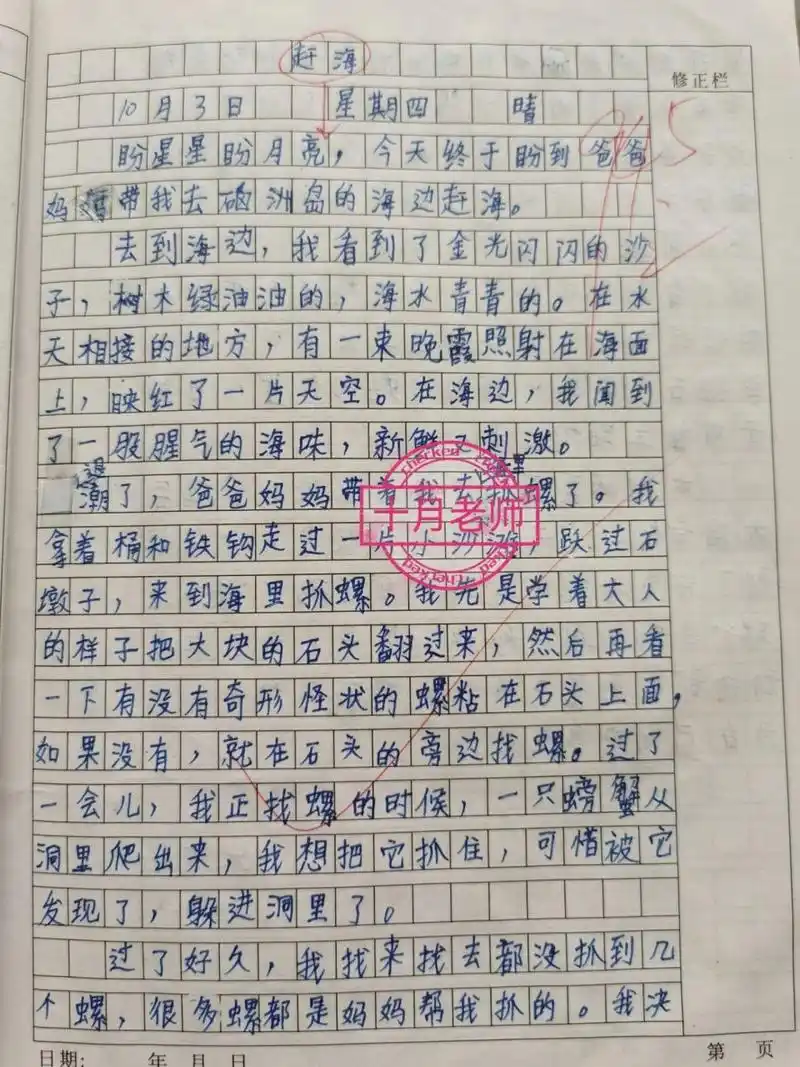 赶海
修正栏
10月3日 星期四 晴
盼星星盼月亮，今天终于盼到爸爸
妈妈带我去硇洲岛的海边赶海。
去到海边，我看到了金光闪闪的沙
子，树木绿油油的，海水青青的。在水
天相接的地方，有一束晚霞照射在海面
上，映红了一片天空。在海边，我闻到
了一股腥气的海味，新鲜又刺激。
退潮了，爸爸妈妈带着我去抓螺了。我
拿着桶和铁钩走过一片小沙滩，跃过石
墩子，来到海里抓螺。我先是学着大人
的样子把大块的石头翻过来，然后再看
一下有没有奇形怪状的螺粘在石头上面，
如果没有，就在石头的旁边找螺。过了
一会儿，我正找螺的时候，一只螃蟹从
洞里爬出来，我想把它抓住，可惜被它
发现了，躲进洞里了。
过了好久，我找来找去都没抓到几
个螺，很多螺都是妈妈帮我抓的。我决
日期： 年 月 日
第 页
checked
十月老师
checked